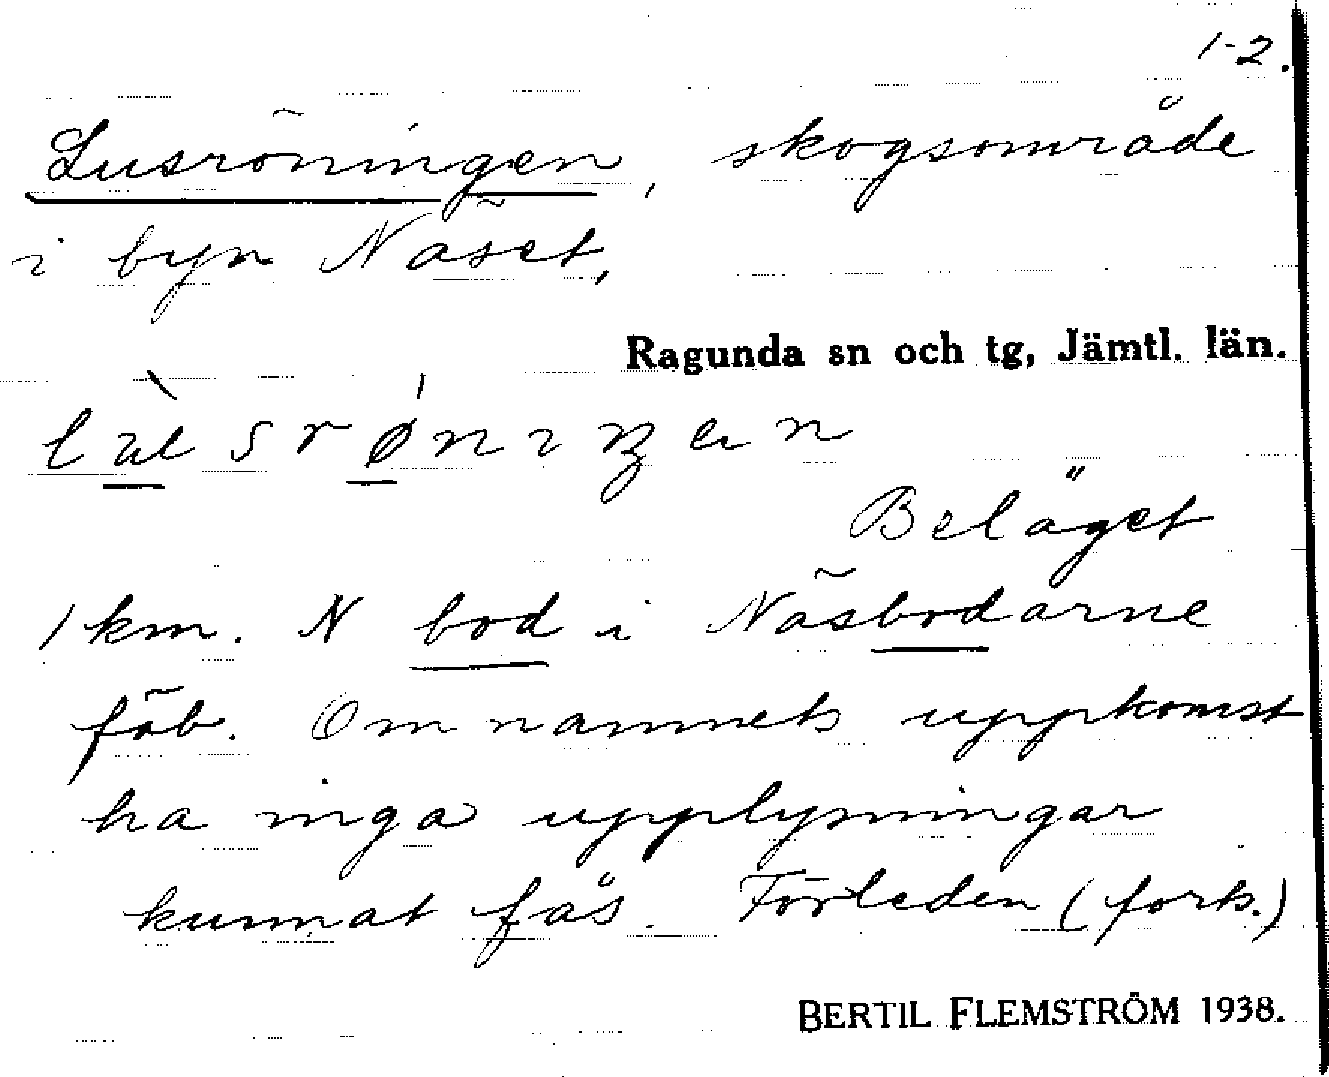 1-2.
Lusröningen, skogsområde
i byn Näset,
Ragunda sn och tg, Jämtl. län.
Beläget
1 km. N bod i Näsbodarne
fäb. Om namnets uppkomst
ha inga upplysningar
kunnat fås. Förleden (forts.)
BERTIL FLEMSTRÖM 1938.